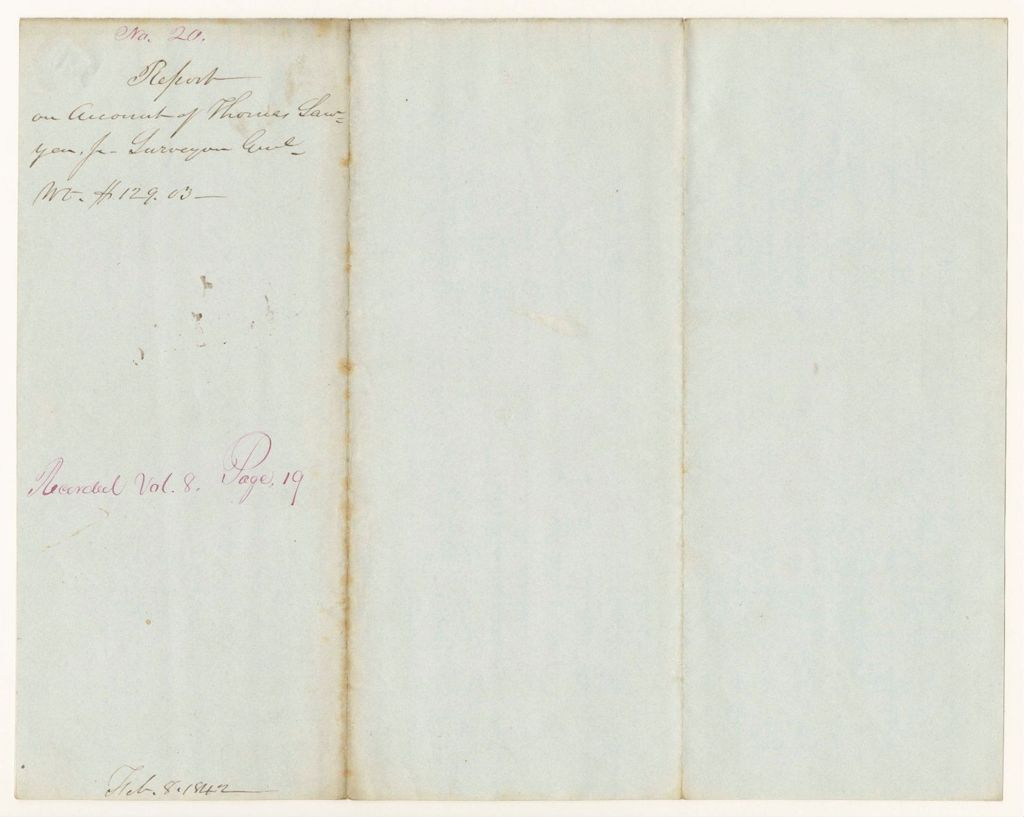 No. 20.
Report
on Account of Thomas Saw=
yer, Jr. Surveyor Genl_
Wt. $129.03_
Recorded Vol. 8. Page. 19
Feb. 8. 1842